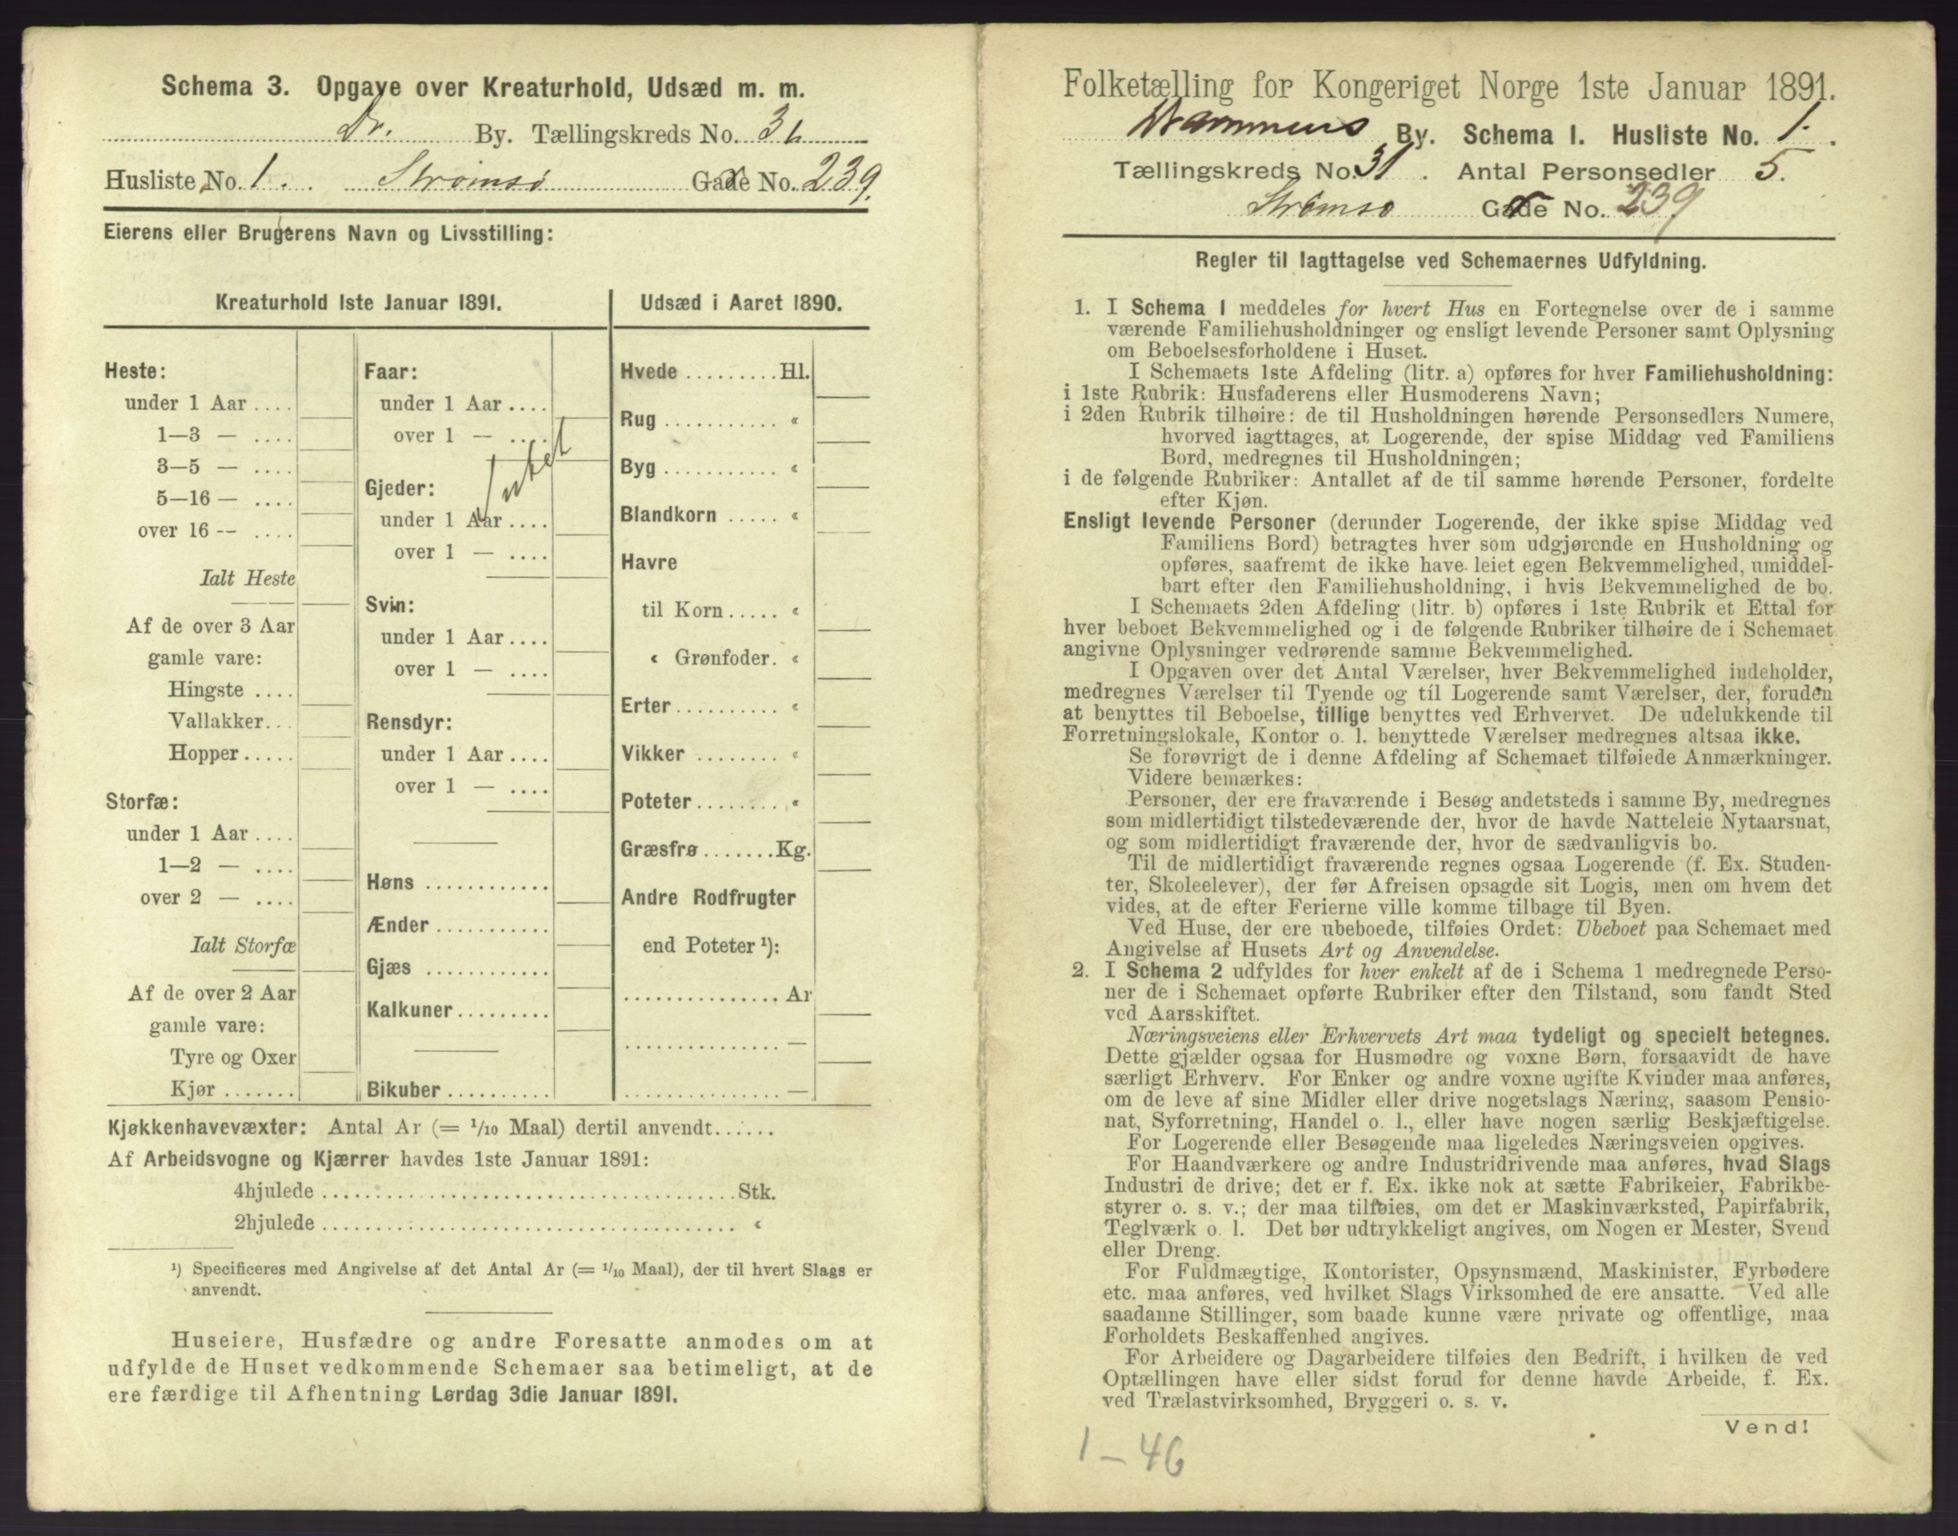 Schema 3. Opgave over Kreaturhold, Udsæd m. m.
Dr. By. Tællingskreds No. 31
Husliste No. 1. Strømsø Gade No. 239.
Eierens eller Brugerens Navn og Livsstilling:
Kreaturhold 1ste Januar 1891.
Heste:
under 1 Aar ....
1—3 — ....
3—5 — ....
5—16 — ....
over 16 -- ....
Ialt Heste
Af de over 3 Aar
gamle vare:
Hingste ....
Vallakker...
Hopper.....
Storfæ:
under 1 Aar ....
1—2 — ....
over 2 — ....
Ialt Storfæ
Af de over 2 Aar
gamle vare:
Tyre og Oxer
Kjør .......
Faar:
under 1 Aar ....
over 1 — ....
Intet
Gjeder:
under 1 Aar ....
over 1 — ....
Svin:
under 1 Aar ....
over 1 — ....
Rensdyr:
under 1 Aar ....
over 1 — ....
Høns ............
Ænder ...........
Gjæs ............
Kalkuner .........
Bikuber ..........
Udsæd i Aaret 1890.
Hvede ......... Hl.
Rug ........... «
Byg ........... «
Blandkorn ..... «
Havre
til Korn ..... «
« Grønfoder. «
Erter ......... «
Vikker ........ «
Poteter ........ «
Græsfrø ....... Kg.
Andre Rodfrugter
end Poteter ¹):
............... Ar
............... —
............... —
Kjøkkenhavevæxter: Antal Ar (= 1/10 Maal) dertil anvendt......
Af Arbeidsvogne og Kjærrer havdes 1ste Januar 1891:
4hjulede ....................................... Stk.
2hjulede ....................................... «
¹) Specificeres med Angivelse af det Antal Ar (= 1/10 Maal), der til hvert Slags er
anvendt.
Huseiere, Husfædre og andre Foresatte anmodes om at
udfylde de Huset vedkommende Schemaer saa betimeligt, at de
ere færdige til Afhentning Lørdag 3die Januar 1891.
Folketælling for Kongeriget Norge 1ste Januar 1891.
Drammens By. Schema I. Husliste No. 1.
Tællingskreds No. 31. Antal Personsedler 5.
Strømsø Gade No. 239
Regler til Iagttagelse ved Schemaernes Udfyldning.
1. I Schema I meddeles for hvert Hus en Fortegnelse over de i samme
værende Familiehusholdninger og ensligt levende Personer samt Oplysning
om Beboelsesforholdene i Huset.
I Schemaets 1ste Afdeling (litr. a) opføres for hver Familiehusholdning:
i 1ste Rubrik: Husfaderens eller Husmoderens Navn;
i 2den Rubrik tilhøire: de til Husholdningen hørende Personsedlers Numere,
hvorved iagttages, at Logerende, der spise Middag ved Familiens
Bord, medregnes til Husholdningen;
i de følgende Rubriker: Antallet af de til samme hørende Personer, fordelte
efter Kjøn.
Ensligt levende Personer (derunder Logerende, der ikke spise Middag ved
Familiens Bord) betragtes hver som udgjørende en Husholdning og
opføres, saafremt de ikke have leiet egen Bekvemmelighed, umiddel-
bart efter den Familiehusholdning, i hvis Bekvemmelighed de bo.
I Schemaets 2den Afdeling (litr. b) opføres i 1ste Rubrik et Ettal for
hver beboet Bekvemmelighed og i de følgende Rubriker tilhøire de i Schemaet
angivne Oplysninger vedrørende samme Bekvemmelighed.
I Opgaven over det Antal Værelser, hver Bekvemmelighed indeholder,
medregnes Værelser til Tyende og til Logerende samt Værelser, der, foruden
at benyttes til Beboelse, tillige benyttes ved Erhvervet. De udelukkende til
Forretningslokale, Kontor o. l. benyttede Værelser medregnes altsaa ikke.
Se forøvrigt de i denne Afdeling af Schemaet tilføiede Anmærkninger.
Videre bemærkes:
Personer, der ere fraværende i Besøg andetsteds i samme By, medregnes
som midlertidigt tilstedeværende der, hvor de havde Natteleie Nytaarsnat,
og som midlertidigt fraværende der, hvor de sædvanligvis bo.
Til de midlertidigt fraværende regnes ogsaa Logerende (f. Ex. Studen-
ter, Skoleelever), der før Afreisen opsagde sit Logis, men om hvem det
vides, at de efter Ferierne ville komme tilbage til Byen.
Ved Huse, der ere ubeboede, tilføies Ordet: Ubeboet paa Schemaet med
Angivelse af Husets Art og Anvendelse.
2. I Schema 2 udfyldes for hver enkelt af de i Schema 1 medregnede Perso-
ner de i Schemaet opførte Rubriker efter den Tilstand, som fandt Sted
ved Aarsskiftet.
Næringsveiens eller Erhvervets Art maa tydeligt og specielt betegnes.
Dette gjælder ogsaa for Husmødre og voxne Børn, forsaavidt de have
særligt Erhverv. For Enker og andre voxne ugifte Kvinder maa anføres,
om de leve af sine Midler eller drive nogetslags Næring, saasom Pensio-
nat, Syforretning, Handel o. l., eller have nogen særlig Beskjæftigelse.
For Logerende eller Besøgende maa ligeledes Næringsveien opgives.
For Haandværkere og andre Industridrivende maa anføres, hvad Slags
Industri de drive; det er f. Ex. ikke nok at sætte Fabrikeier, Fabrikbe-
styrer o. s. v.; der maa tilføies, om det er Maskinværksted, Papirfabrik,
Teglværk o. l. Det bør udtrykkeligt angives, om Nogen er Mester, Svend
eller Dreng.
For Fuldmægtige, Kontorister, Opsynsmænd, Maskinister, Fyrbødere
etc. maa anføres, ved hvilket Slags Virksomhed de ere ansatte. Ved alle
saadanne Stillinger, som baade kunne være private og offentlige, maa
Forholdets Beskaffenhed angives.
For Arbeidere og Dagarbeidere tilføies den Bedrift, i hvilken de ved
Optællingen have eller sidst forud for denne havde Arbeide, f. Ex.
ved Trælastvirksomhed, Bryggeri o. s. v.
Vend!
1-46